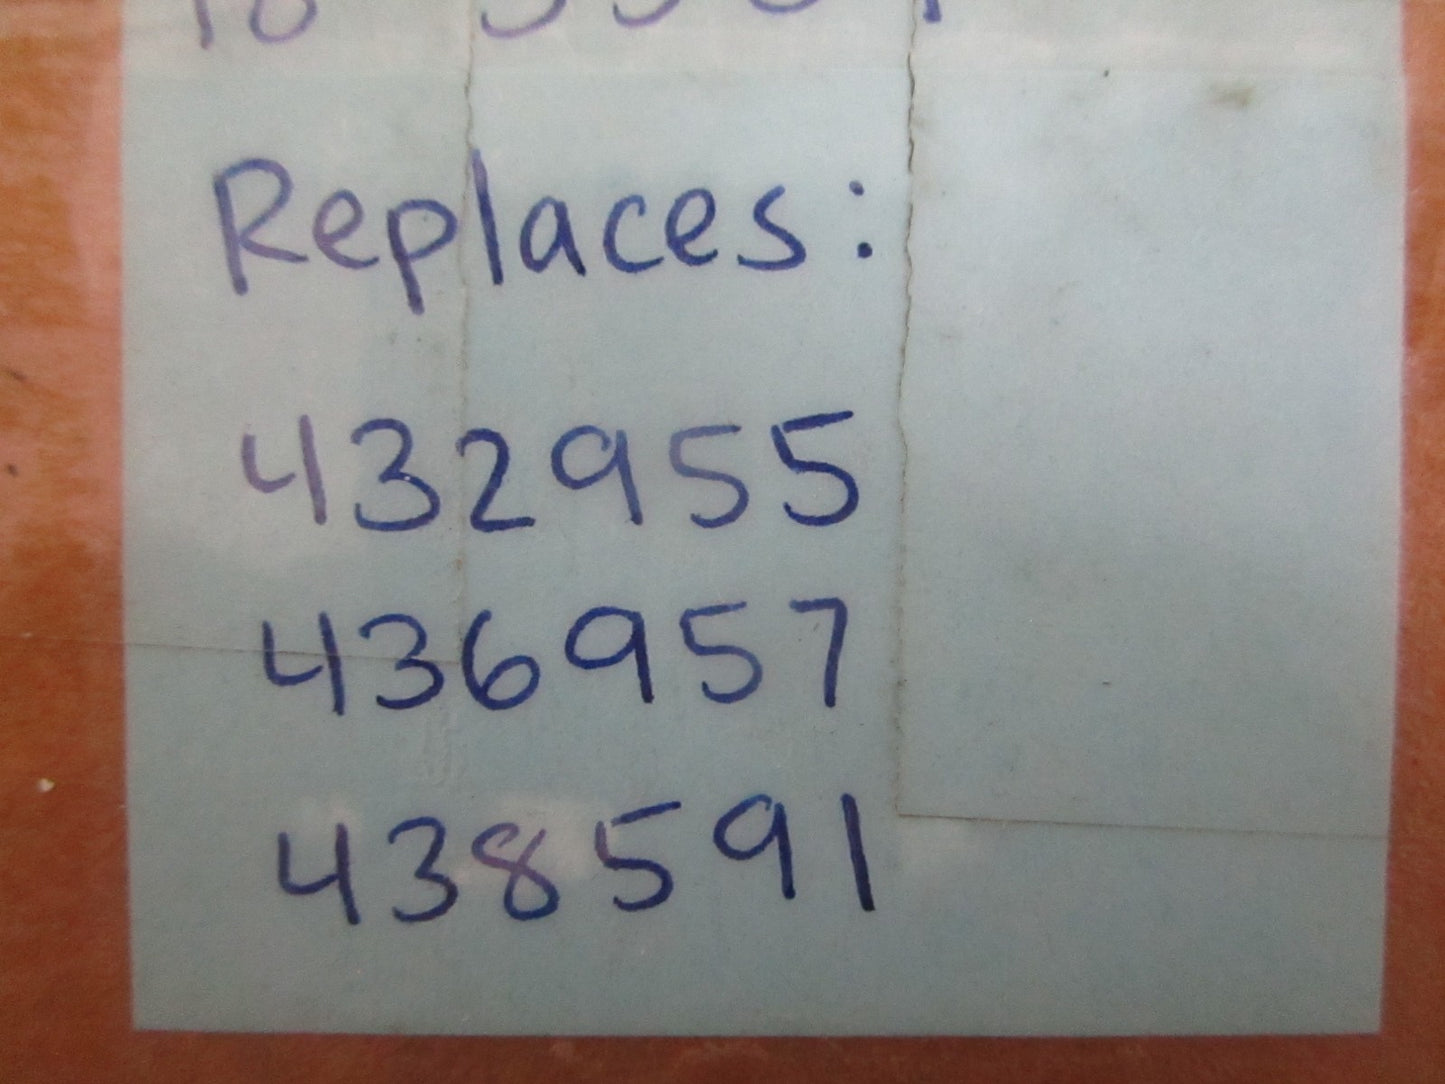 Replaces:
432955
436957
438591